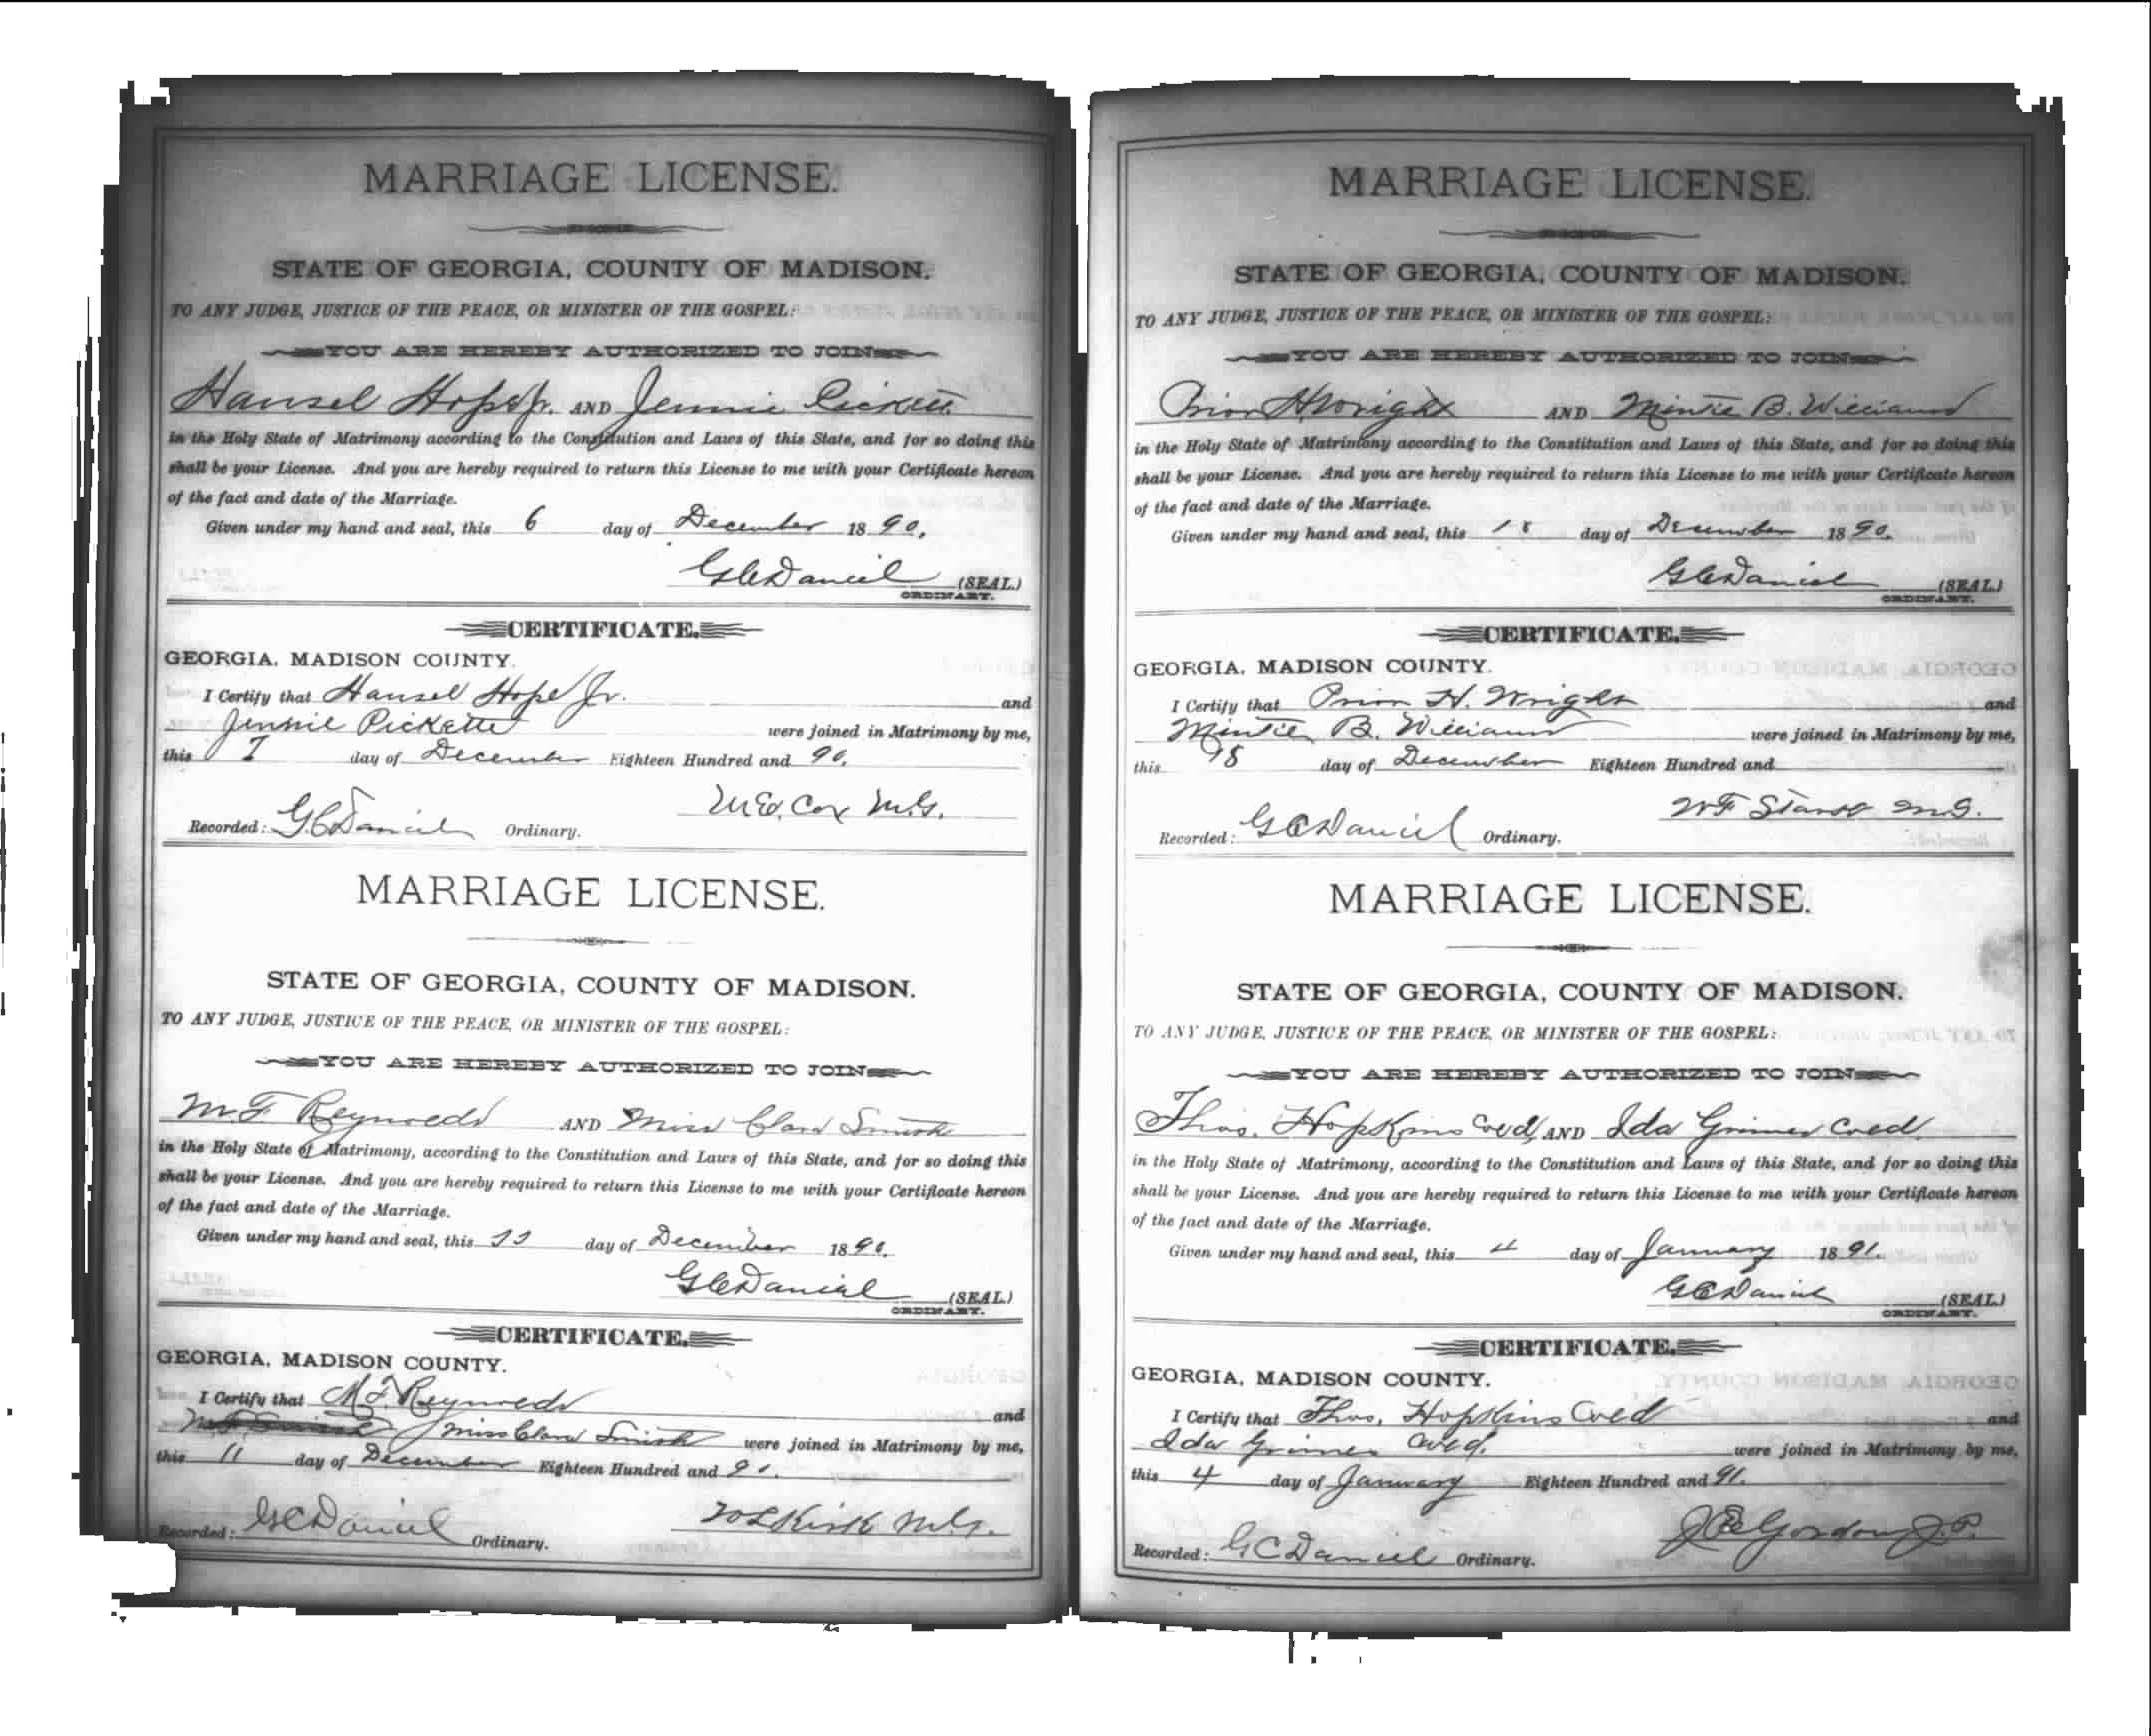 MARRIAGE LICENSE.
STATE OF GEORGIA, COUNTY OF MADISON.
TO ANY JUDGE, JUSTICE OF THE PEACE, OR MINISTER OF THE GOSPEL:
YOU ARE HEREBY AUTHORIZED TO JOIN
Hansel Hope Jr. AND Jennie Pickett
in the Holy State of Matrimony according to the Constitution and Laws of this State, and for so doing this
shall be your License. And you are hereby required to return this License to me with your Certificate hereon
of the fact and date of the Marriage.
Given under my hand and seal, this 6 day of December 1890.
G C Daniel (SEAL.)
ORDINARY.
CERTIFICATE.
GEORGIA, MADISON COUNTY.
I Certify that Hansel Hope Jr. and
Jennie Pickette were joined in Matrimony by me,
this 7 day of December Eighteen Hundred and 90.
Cox M.G.
Recorded: G.C Daniel Ordinary.
MARRIAGE LICENSE.
STATE OF GEORGIA, COUNTY OF MADISON.
TO ANY JUDGE, JUSTICE OF THE PEACE, OR MINISTER OF THE GOSPEL:
YOU ARE HEREBY AUTHORIZED TO JOIN
M.F Reynolds AND Miss Clara Smith
in the Holy State of Matrimony, according to the Constitution and Laws of this State, and for so doing this
shall be your License. And you are hereby required to return this License to me with your Certificate hereon
of the fact and date of the Marriage.
Given under my hand and seal, this 11 day of December 1890.
G C Daniel (SEAL.)
ORDINARY.
CERTIFICATE.
GEORGIA, MADISON COUNTY.
I Certify that M.F. Reynolds and
Miss Clara Smith were joined in Matrimony by me,
this 11 day of December Eighteen Hundred and 90.
Kirk M.G.
Recorded: G C Daniel Ordinary.
MARRIAGE LICENSE.
STATE OF GEORGIA, COUNTY OF MADISON.
TO ANY JUDGE, JUSTICE OF THE PEACE, OR MINISTER OF THE GOSPEL:
YOU ARE HEREBY AUTHORIZED TO JOIN
Prior H. Wright AND Mintie B. Williams
in the Holy State of Matrimony according to the Constitution and Laws of this State, and for so doing this
shall be your License. And you are hereby required to return this License to me with your Certificate hereon
of the fact and date of the Marriage.
Given under my hand and seal, this 18 day of December 1890.
G C Daniel (SEAL.)
ORDINARY.
CERTIFICATE.
GEORGIA, MADISON COUNTY.
I Certify that Prior H. Wright and
Mintie B. Williams were joined in Matrimony by me,
this 18 day of December Eighteen Hundred and
W F M.G.
Recorded: G C Daniel Ordinary.
MARRIAGE LICENSE.
STATE OF GEORGIA, COUNTY OF MADISON.
TO ANY JUDGE, JUSTICE OF THE PEACE, OR MINISTER OF THE GOSPEL:
YOU ARE HEREBY AUTHORIZED TO JOIN
Thos. Hopkins Cold, AND Ida Grimes Cold.
in the Holy State of Matrimony, according to the Constitution and Laws of this State, and for so doing this
shall be your License. And you are hereby required to return this License to me with your Certificate hereon
of the fact and date of the Marriage.
Given under my hand and seal, this 4 day of January 1891.
G C Daniel (SEAL.)
ORDINARY.
CERTIFICATE.
GEORGIA, MADISON COUNTY.
I Certify that Thos. Hopkins Cold and
Ida Grimes Cold. were joined in Matrimony by me,
this 4 day of January Eighteen Hundred and 91.
Gordon J.P.
Recorded: G C Daniel Ordinary.